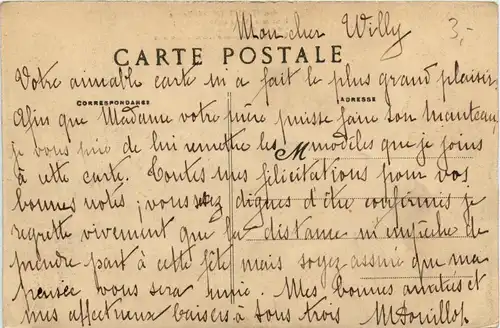 Mon cher Willy
3,-
CARTE POSTALE
Votre aimable carte m'a fait le plus grand plaisir.
CORRESPONDANCE
ADRESSE
Afin que Madame votre mère puisse faire son manteau
je vous prie de lui remettre les modèles que je joins
M
à cette carte. Toutes mes félicitations pour vos
bonnes notes; vous dignes d'être confirmés je
regrette vivement que la distance m'empêche de
prendre part à cette fête mais soyez assuré que ma
pensée vous sera unie. Mes bonnes amitiés et
mes affectueux baisers à tous trois